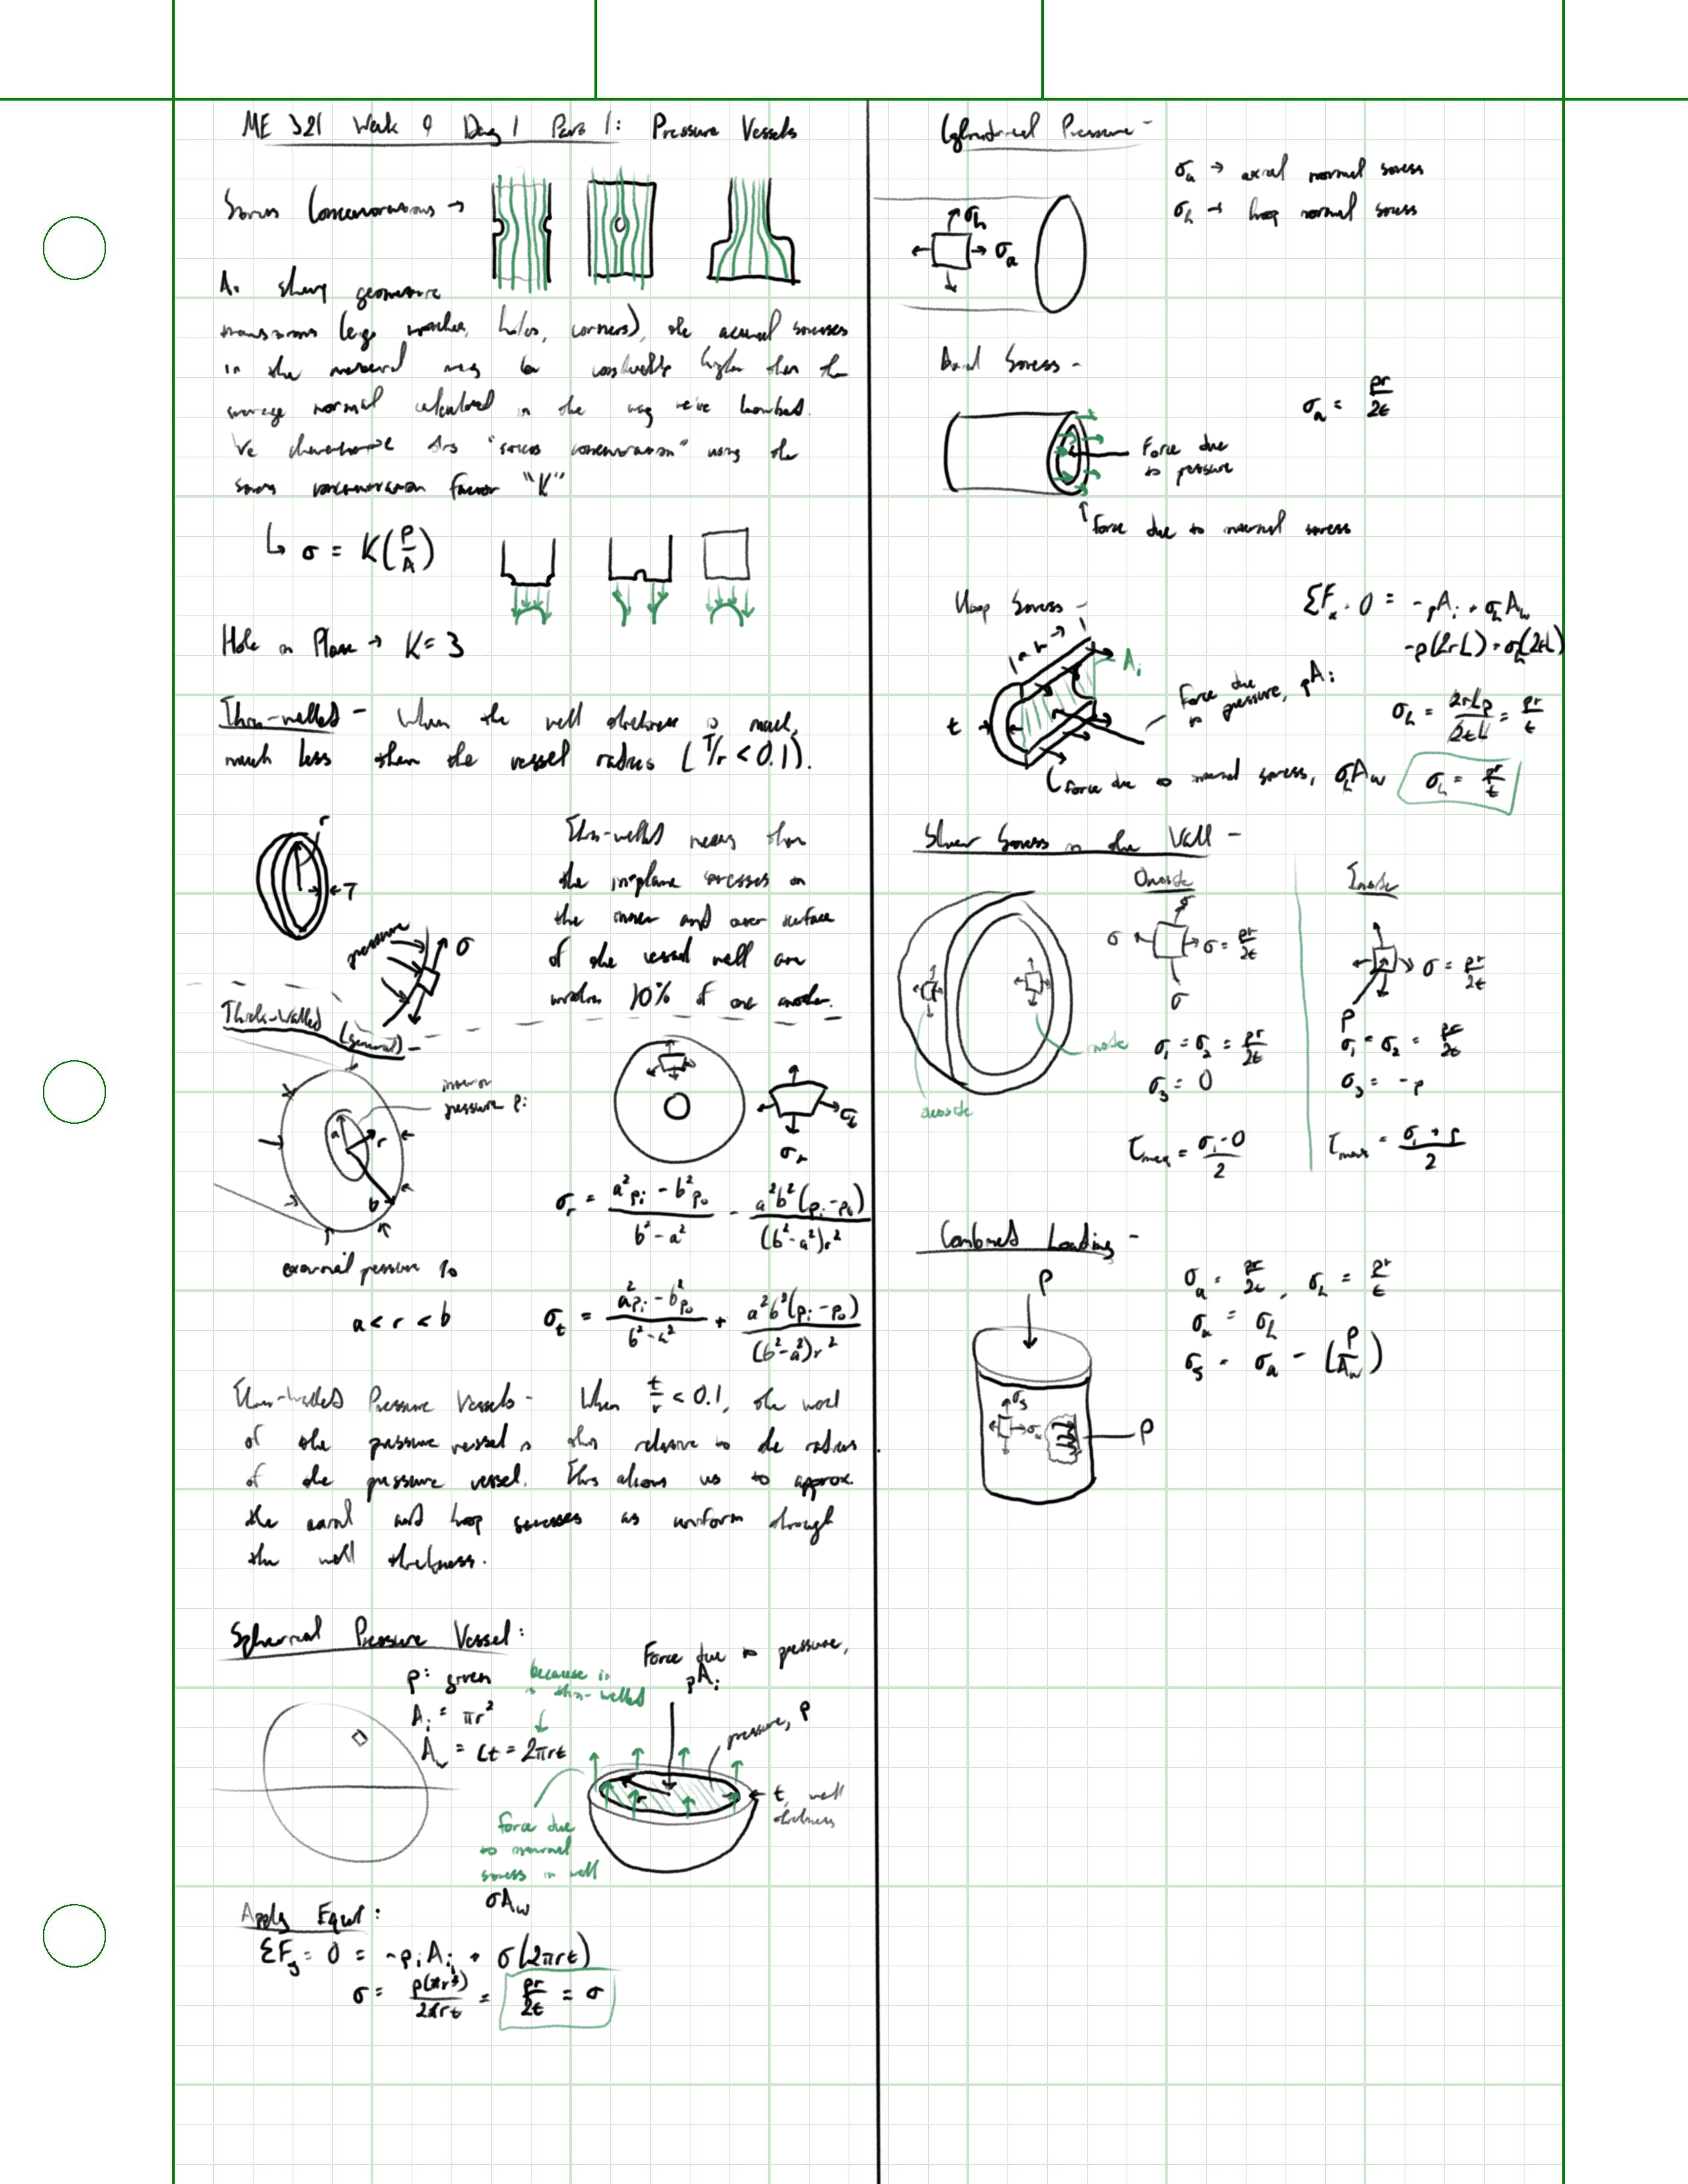 ME 321 Week 9 Day 1 Part 1: Pressure Vessels
Stress Concentrations →
At sharp geometric
transitions (e.g. notches, holes, corners), the actual stresses
in the material may be considerably higher than the
average normal calculated in the way we've learned.
We characterize this "stress concentration" using the
stress concentration factor "K"
↳ σ = K(P/A)
Hole in Plate → K = 3
Thin-walled - When the wall thickness is much,
much less than the vessel radius (T/r < 0.1).
r
T
pressure
σ
Thin-walled means that
the in-plane stresses on
the inner and outer surface
of the vessel wall are
within 10% of one another.
Thick-walled (general) -
interior
pressure Pi
a
r
b
external pressure Po
a < r < b
σt
σr
σr = (a²pi - b²po)/(b² - a²) - (a²b²(pi - po))/((b² - a²)r²)
σt = (a²pi - b²po)/(b² - a²) + (a²b²(pi - po))/((b² - a²)r²)
Thin-walled Pressure Vessels - When t/r < 0.1, the wall
of the pressure vessel is thin relative to the radius
of the pressure vessel. This allows us to approx.
the axial and hoop stresses as uniform through
the wall thickness.
Spherical Pressure Vessel:
p: given
Ai = πr²
A = Ct = 2πrt
because it
is thin-walled
Force due to pressure,
pAi
pressure, p
r
t, wall
thickness
force due
to normal
stress in wall
σAw
Apply Equil:
ΣFy = 0 = -piAi + σ(2πrt)
σ = p(πr²)/2πrt = pr/2t = σ
Cylindrical Pressure -
σa → axial normal stress
σh → hoop normal stress
σh
σa
Axial Stress -
σa = pr/2t
Force due
to pressure
Force due to normal stress
Hoop Stress -
ΣFx = 0 = -pAi + σhAw
-p(2rL) + σh(2tL)
Ai
Force due
to pressure, pAi
t
σh = 2rLp/2tL = pr/t
force due to normal stress, σhAw
σh = pr/t
Shear Stress in the Wall -
Outside
σ
σ
σ = pr/2t
σ
σ1 = σ2 = pr/2t
σ3 = 0
τmax = (σ1 - 0)/2
Inside
σ = pr/2t
P
σ1 = σ2 = pr/2t
σ3 = -p
τmax = (σ1 + p)/2
inside
outside
Combined Loading -
P
σa = pr/2t, σh = pr/t
σx = σh
σy = σa - (P/Aw)
P